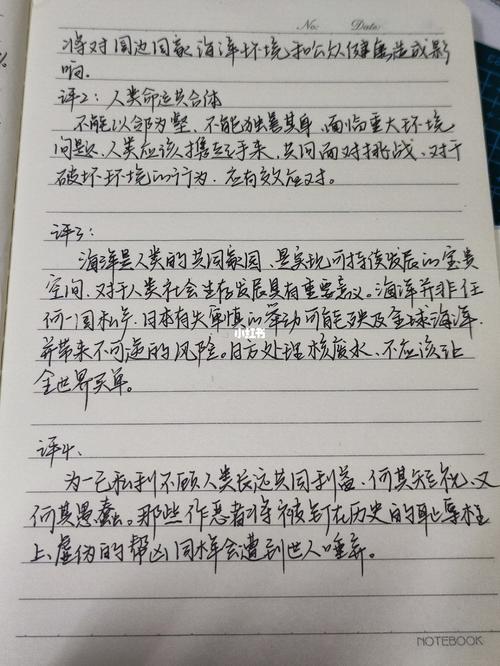 No:
Date:
将对周边国家海洋环境和公众健康造成影
响。
评2：人类命运共合体
不能以邻为壑，不能独善其身，面临重大环境
问题，人类应该携起手来，共同面对挑战，对于
破坏环境的行为，应有效应对。
评3：
海洋是人类的共同家园，是实现可持续发展的宝贵
空间，对于人类社会生存发展具有重要意义。海洋并非任
何一国私产，日本有失审慎的举动可能殃及全球海洋，
并带来不可逆的风险。日方处理核废水，不应该让
全世界买单。
小红书
评4.
为一己私利不顾人类长远共同利益，何其短视，又
何其愚蠢。那些作恶者将被钉在历史的耻辱柱
上，虚伪的帮凶同样会遭到世人唾弃。
NOTEBOOK